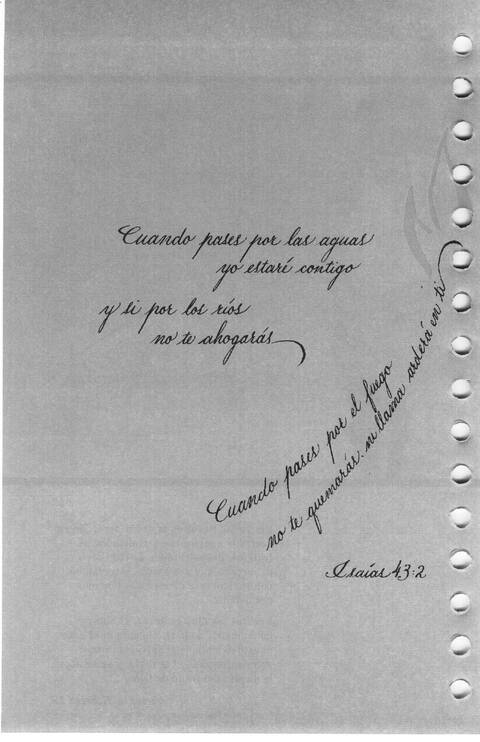 Cuando pases por las aguas
yo estaré contigo
y si por los ríos
no te ahogarás
Cuando pases por el fuego
no te quemarás. ni llama arderá en ti
Isaías 43:2